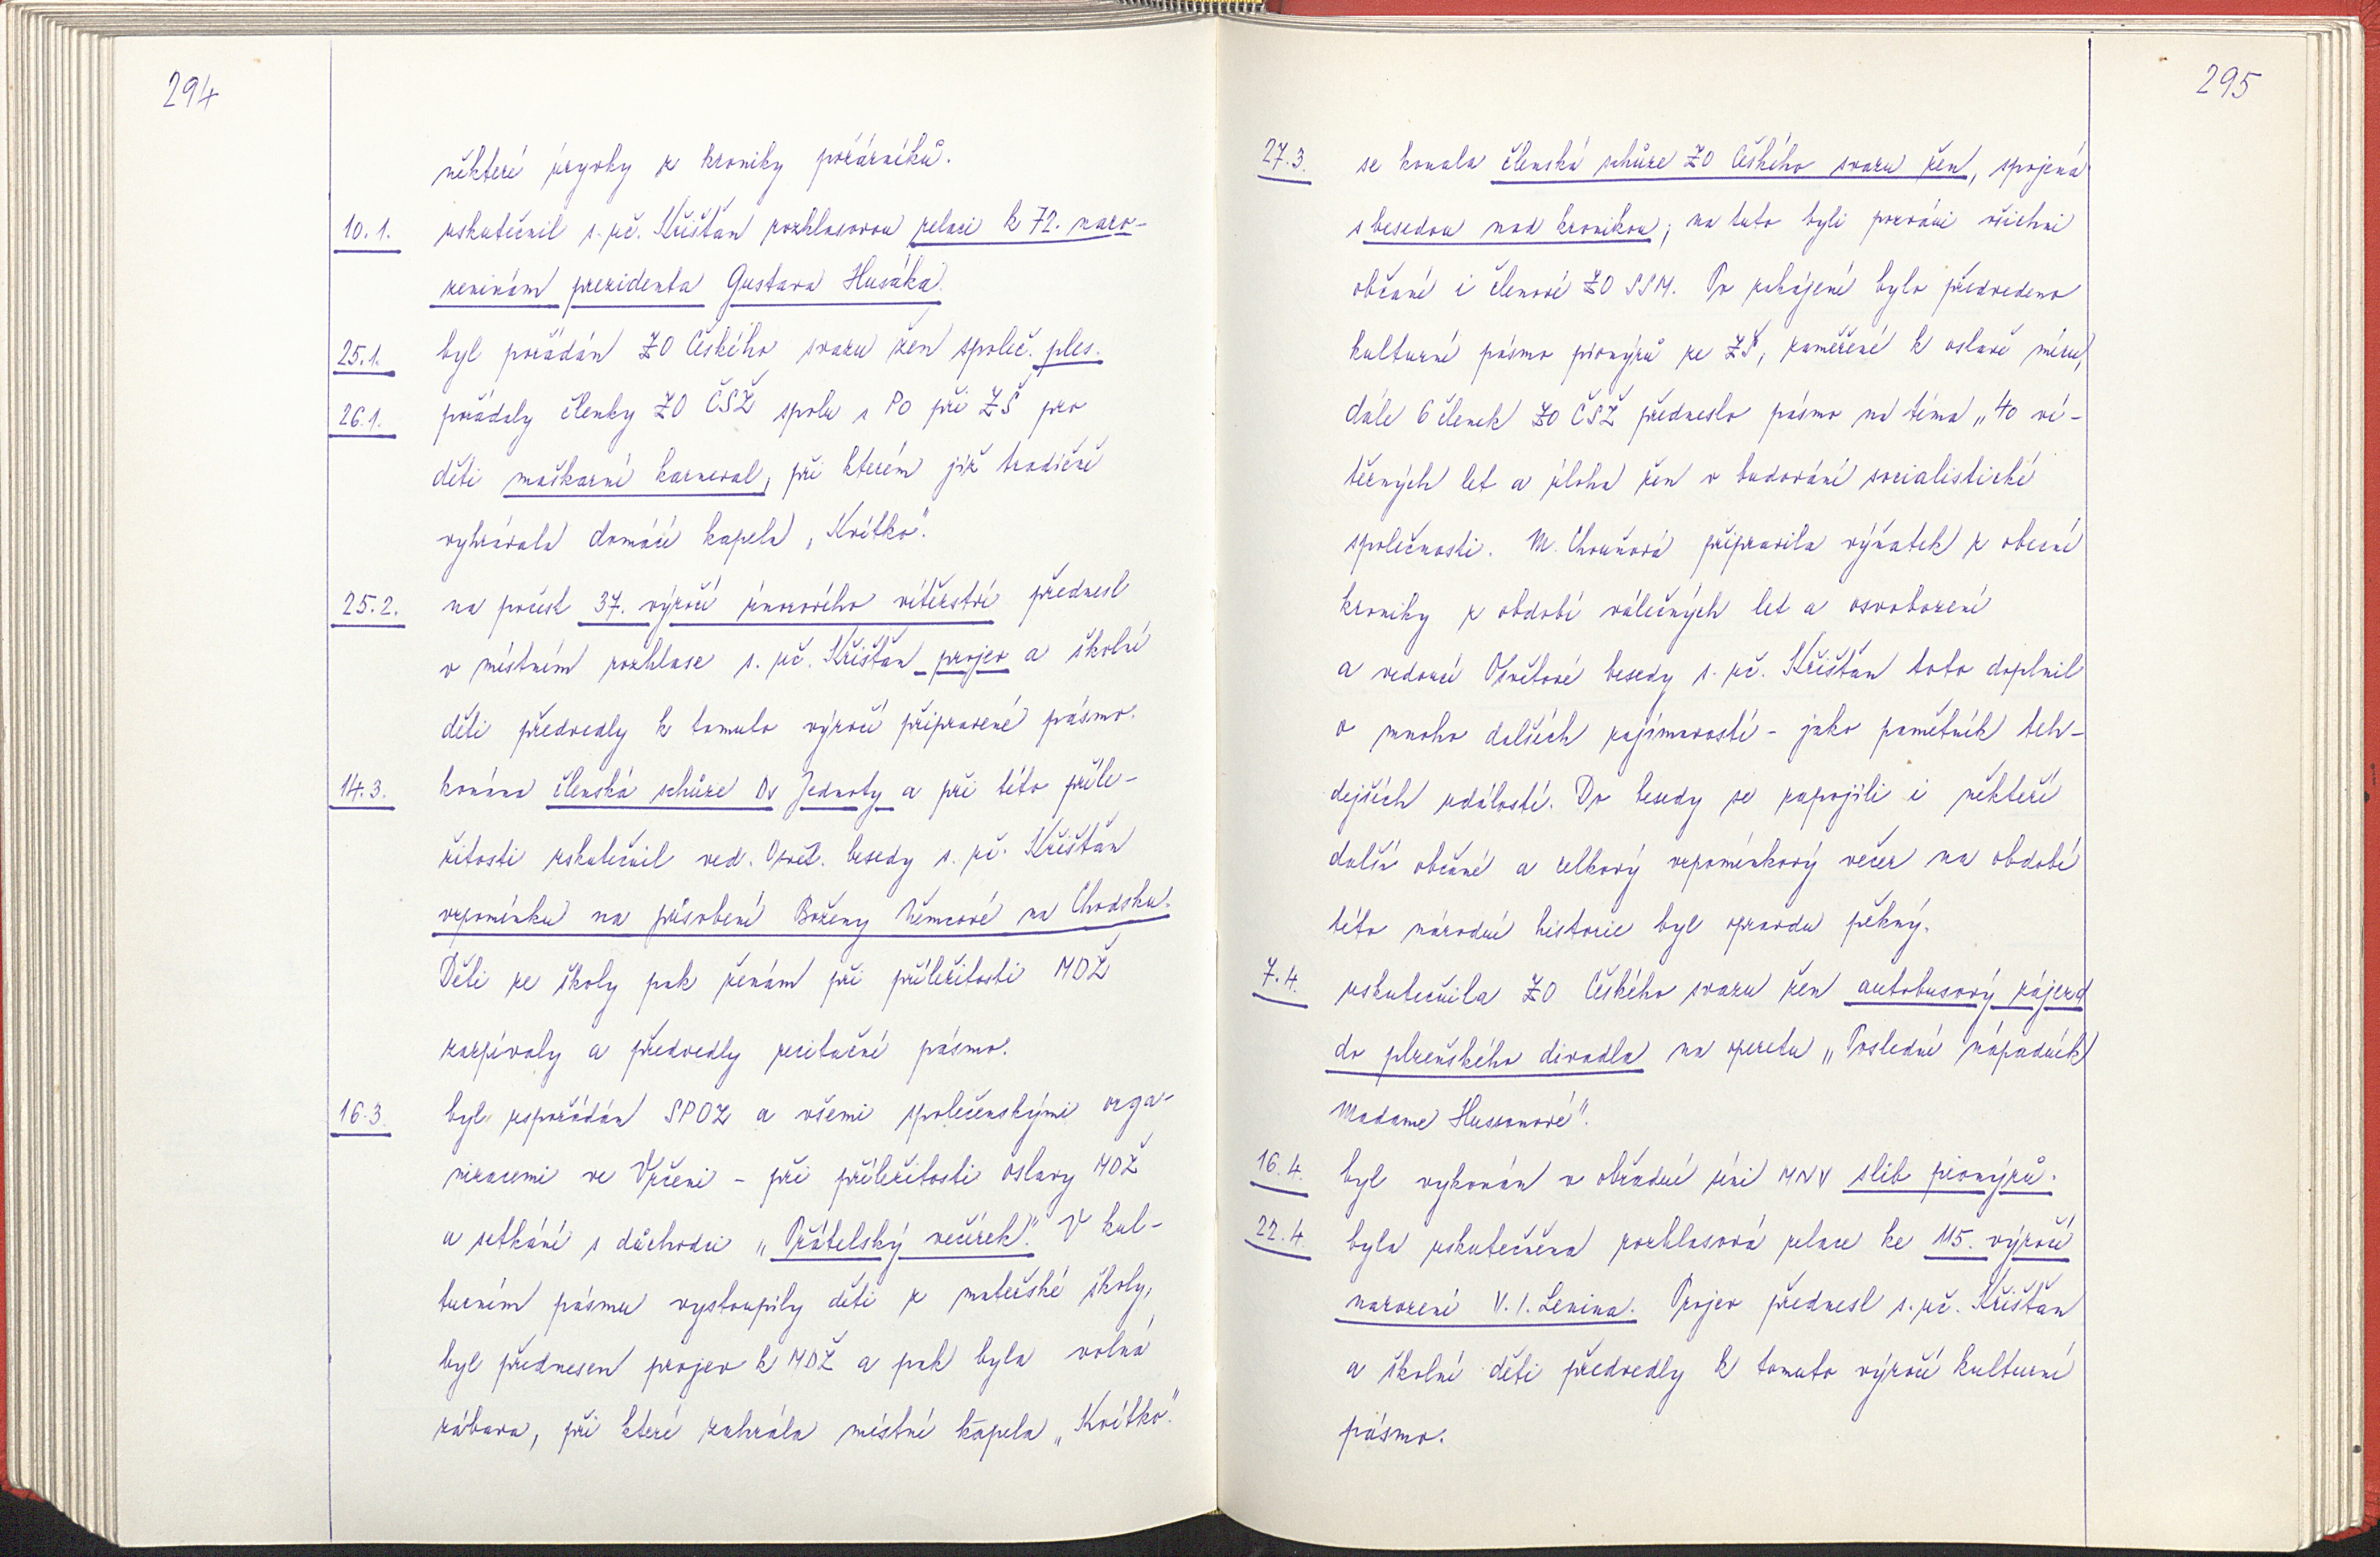 294
některé úryvky z kroniky požárníků.
10.1. uskutečnil s. uč. Křišťan rozhlasovou relaci k 72. naro-
zeninám prezidenta Gustava Husáka.
25.1. byl pořádán ZO Českého svazu žen společ. ples.
26.1. pořádaly členky ZO ČSŽ spolu s PO při ZŠ pro
děti maškarní karneval, při kterém již tradičně
vyhrávala domácí kapela „Kvítko".
25.2. na počest 37. výročí únorového vítězství přednesl
v místním rozhlase s. uč. Křišťan projev a školní
děti předvedly k tomuto výročí připravené pásmo.
14.3. konána členská schůze Dv Jednoty a při této příle-
žitosti uskutečnil ved. Osvět. besedy s. uč. Křišťan
vzpomínku na působení Boženy Němcové na Chodsku.
Děti ze školy pak ženám při příležitosti MDŽ
zazpívaly a předvedly recitační pásmo.
16.3. byl uspořádán SPOZ a všemi společenskými orga-
nizacemi ve Vrčeni - při příležitosti oslavy MDŽ
a setkání s důchodci „Přátelský večírek". V kul-
turním pásmu vystoupily děti z mateřské školy,
byl přednesen projev k MDŽ a pak byla volná
zábava, při které zahrála místní kapela „Kvítko".
295
27.3. se konala členská schůze ZO Českého svazu žen, spojená
s besedou nad kronikou; na tuto byli pozváni všichni
občané i členové ZO SSM. Po zahájení bylo předvedeno
kulturní pásmo pionýrů ze ZŠ, zaměřené k oslavě míru,
dále 6 členek ZO ČSŽ předneslo pásmo na téma „40 ví-
tězných let a úloha žen v budování socialistické
společnosti. M. Chouňová připravila výňatek z obecní
kroniky z období válečných let a osvobození
a vedoucí Osvětové besedy s. uč. Křišťan toto doplnil
o mnoho dalších zajímavostí - jako pamětník teh-
dejších událostí. Do besedy se zapojili i někteří
další občané a celkový vzpomínkový večer na období
této národní historie byl opravdu pěkný.
7.4. uskutečnila ZO Českého svazu žen autobusový zájezd
do plzeňského divadla na operetu „Poslední nápadník
Madame Hussonové".
16.4. byl vykonán v obřadní síni MNV slib pionýrů.
22.4. byla uskutečněna rozhlasová relace ke 115. výročí
narození V. I. Lenina. Projev přednesl s. uč. Křišťan
a školní děti předvedly k tomuto výročí kulturní
pásmo.